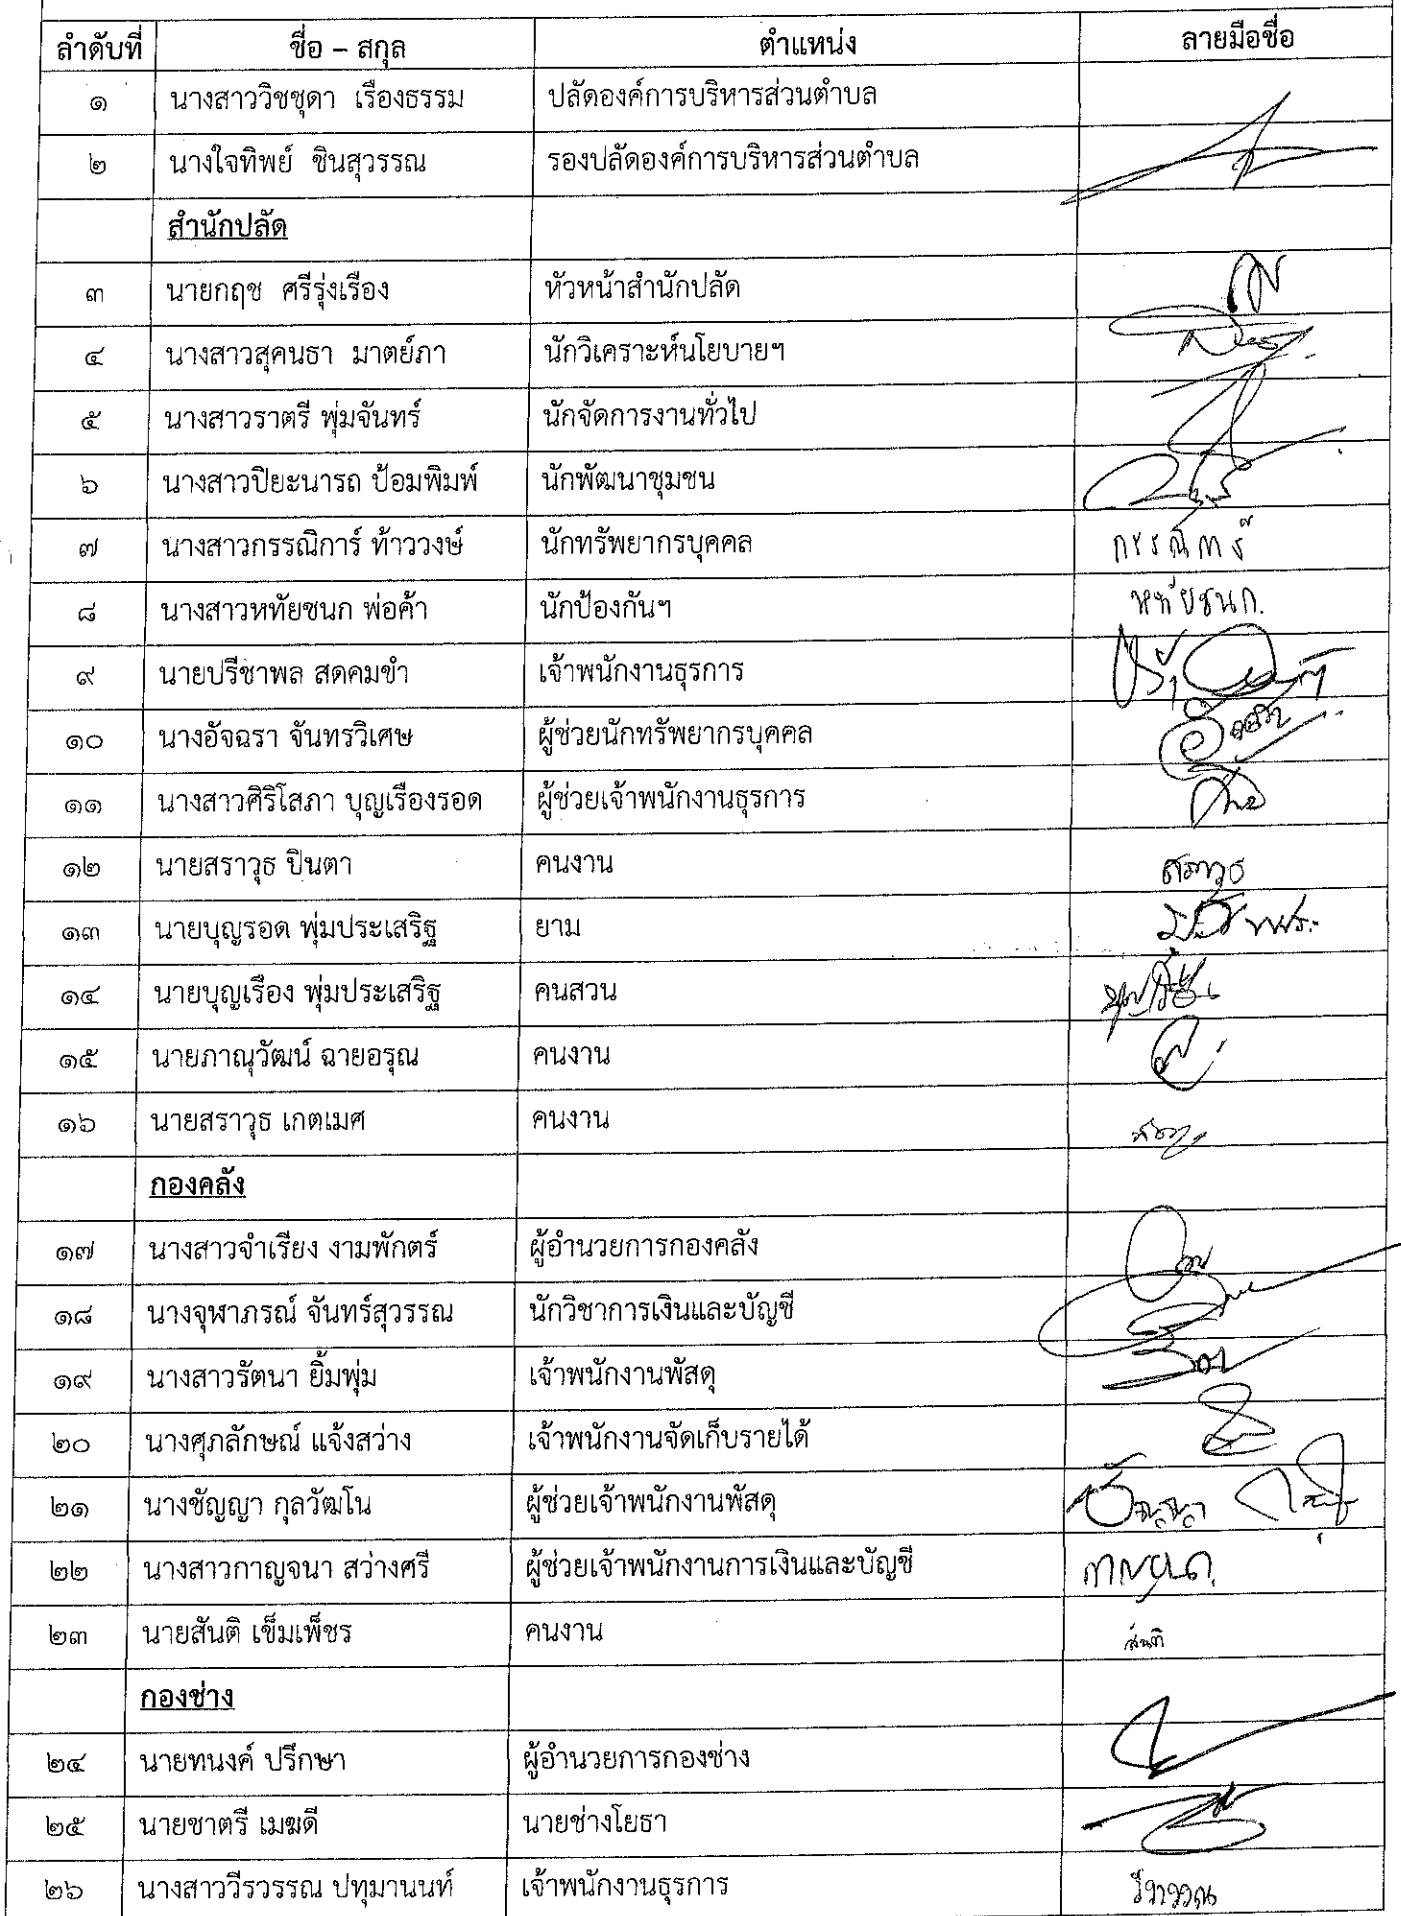 ลำดับที่ ชื่อ – สกุล ตำแหน่ง ลายมือชื่อ
๑ นางสาววิชชุดา เรืองธรรม ปลัดองค์การบริหารส่วนตำบล
๒ นางใจทิพย์ ชินสุวรรณ รองปลัดองค์การบริหารส่วนตำบล
สำนักปลัด
๓ นายกฤช ศรีรุ่งเรือง หัวหน้าสำนักปลัด
๔ นางสาวสุคนธา มาตย์ภา นักวิเคราะห์นโยบายฯ
๕ นางสาวราตรี พุ่มจันทร์ นักจัดการงานทั่วไป
๖ นางสาวปิยะนารถ ป้อมพิมพ์ นักพัฒนาชุมชน
๗ นางสาวกรรณิการ์ ท้าววงษ์ นักทรัพยากรบุคคล กรรณิการ์
๘ นางสาวหทัยชนก พ่อค้า นักป้องกันฯ หทัยชนก.
๙ นายปรีชาพล สดคมขำ เจ้าพนักงานธุรการ
๑๐ นางอัจฉรา จันทรวิเศษ ผู้ช่วยนักทรัพยากรบุคคล
๑๑ นางสาวศิริโสภา บุญเรืองรอด ผู้ช่วยเจ้าพนักงานธุรการ
๑๒ นายสราวุธ ปินตา คนงาน สราวุธ
๑๓ นายบุญรอด พุ่มประเสริฐ ยาม
๑๔ นายบุญเรือง พุ่มประเสริฐ คนสวน
๑๕ นายภาณุวัฒน์ ฉายอรุณ คนงาน
๑๖ นายสราวุธ เกตเมศ คนงาน
กองคลัง
๑๗ นางสาวจำเรียง งามพักตร์ ผู้อำนวยการกองคลัง
๑๘ นางจุฬาภรณ์ จันทร์สุวรรณ นักวิชาการเงินและบัญชี
๑๙ นางสาวรัตนา ยิ้มพุ่ม เจ้าพนักงานพัสดุ
๒๐ นางศุภลักษณ์ แจ้งสว่าง เจ้าพนักงานจัดเก็บรายได้
๒๑ นางชัญญา กุลวัฒโน ผู้ช่วยเจ้าพนักงานพัสดุ
๒๒ นางสาวกาญจนา สว่างศรี ผู้ช่วยเจ้าพนักงานการเงินและบัญชี
๒๓ นายสันติ เข็มเพ็ชร คนงาน สันติ
กองช่าง
๒๔ นายทนงค์ ปรึกษา ผู้อำนวยการกองช่าง
๒๕ นายชาตรี เมฆดี นายช่างโยธา
๒๖ นางสาววีรวรรณ ปทุมานนท์ เจ้าพนักงานธุรการ วีรวรรณ